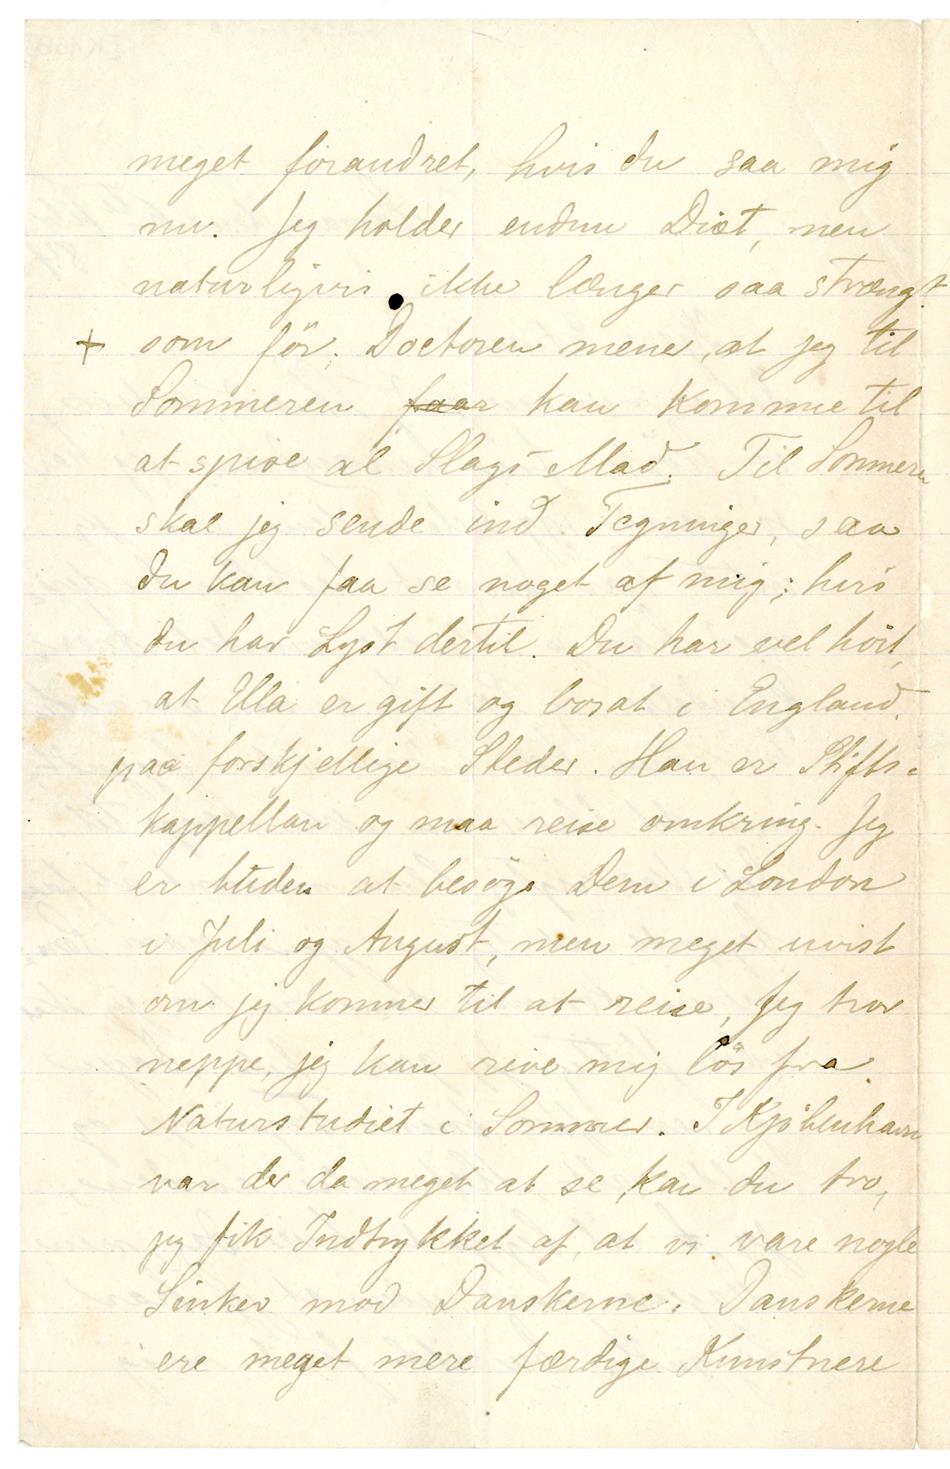 meget forandret, hvis du saa mig
nu. Jeg holder endnu Diæt, men
naturligvis ikke længer saa strængt
+ som för. Doctoren mener, at jeg til
Sommeren faar kan komme til
at spise al Slags Mad. Til Sommeren
skal jeg sende ind Tegninger, saa
du kan faa se noget af mig; hvis
du har Lyst dertil. Du har vel hört,
at Ulla er gift og bosat i England.
paa forskjellige Steder. Han er Stifts-
kappellan og maa reise omkring. Jeg
er buden at besöge Dem i London
i Juli og August, men meget uvist
om jeg kommer til at reise, Jeg tror
neppe, jeg kan rive mig lös fra
Naturstudiet i Sommer. I Kjöbenhavn
var der da meget at se, kan du tro,
jeg fik Indtrykket af, at vi vare nogle
Sinker mod Danskerne. Danskerne
ere meget mere færdige Kunstnere